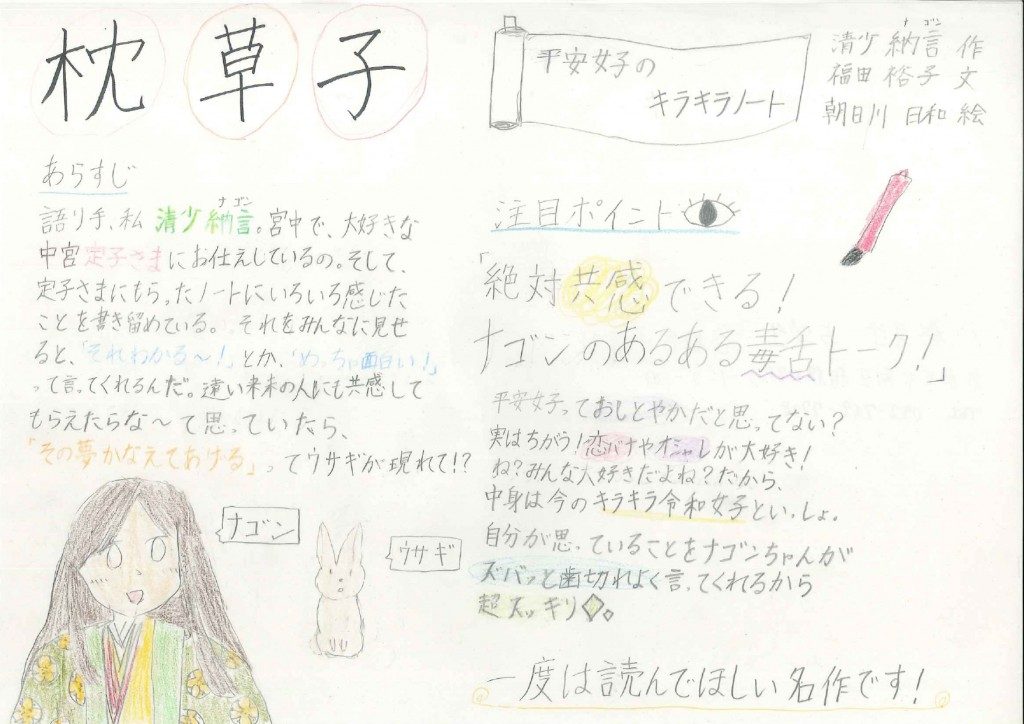 枕草子
平安女子の
キラキラノート
清少納言 作
ナゴン
福田 裕子 文
朝日川 日和 絵
あらすじ
語り手、私 清少納言。宮中で、大好きな
ナゴン
中宮定子さまにお仕えしているの。そして、
定子さまにもらったノートにいろいろ感じた
ことを書き留めている。それをみんなに見せ
ると、「それわかる〜!」とか、「めっちゃ面白い!」
って言ってくれるんだ。遠い未来の人にも共感して
もらえたらな〜て思っていたら、
「その夢かなえてあげる」ってウサギが現れて!?
ナゴン
ウサギ
注目ポイント
「絶対共感できる!
ナゴンのあるある毒舌トーク!」
平安女子っておしとやかだと思ってない?
実はちがう!恋バナやオシャレが大好き!
ね?みんな大好きだよね?だから、
中身は今のキラキラ令和女子といっしょ。
自分が思っていることをナゴンちゃんが
ズバッと歯切れよく言ってくれるから
超スッキリ。
一度は読んでほしい名作です!